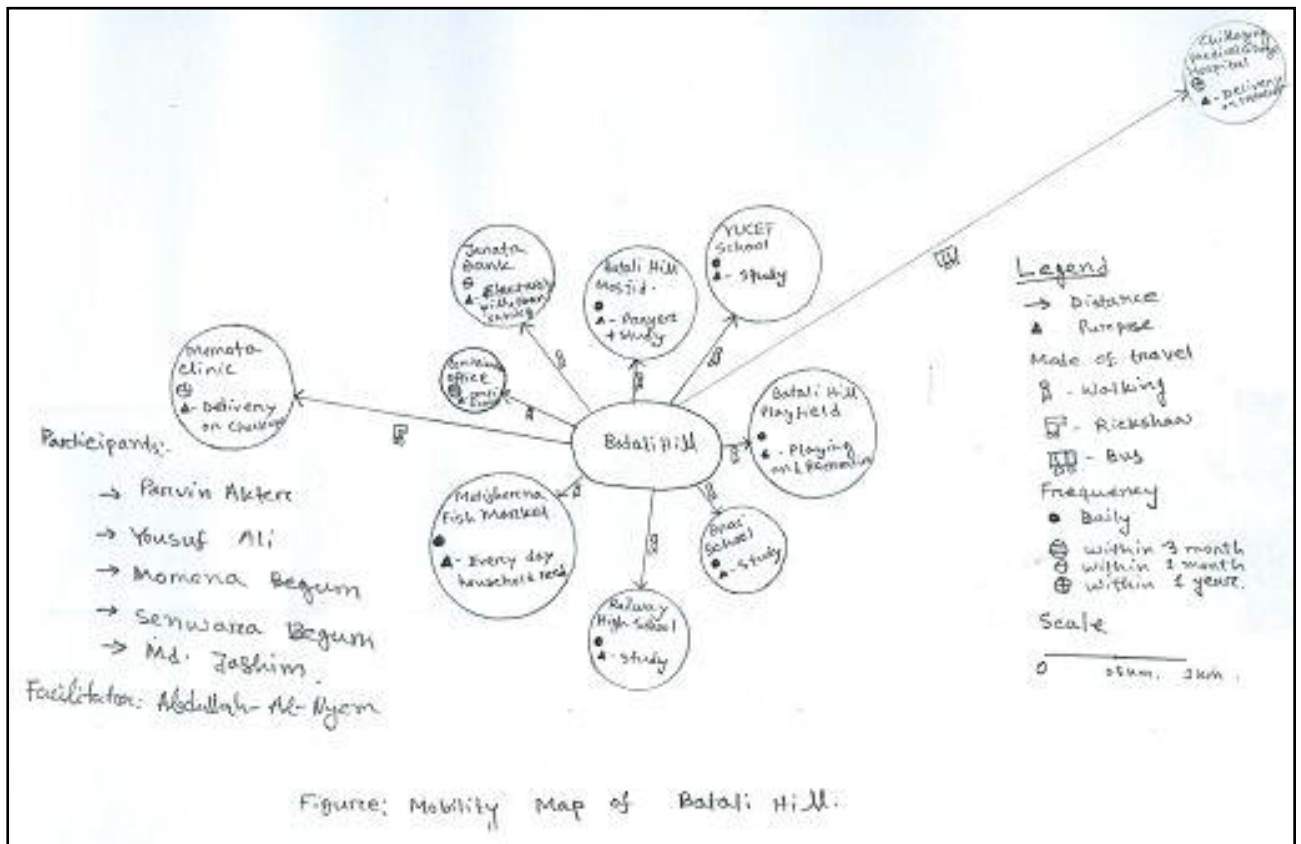 Medical College
Hospital
▲ - Delivery
YUCEF
School
▲ - Study
Janata
Bank
▲ - Electricity
Batali Hill
Mosjid.
▲ - Prayere
+ Study
Momota
Clinic
▲ - Delivery
on Checkup
office
Batali Hill
Batali Hill
Playfield
▲ - Playing
and Recreation
Motijherena
Fish Market
▲ - Every day
household need
School
▲ - Study
Railway
High School
▲ - Study
Participants:
→ Parvin Aktere
→ Yousuf Ali
→ Momena Begum
→ Senwara Begum
→ Md. Jashim.
Facilitator: Abdullah-Al-Nyem
Legend
→ Distance
▲ Purpose
Mode of travel
- Walking
- Rickshaw
- Bus
Frequency
● Daily
⊜ within 3 month
⊖ within 1 month
⊕ within 1 yeare.
Scale
0 .5km. 1km.
Figure: Mobility Map of Batali Hill.